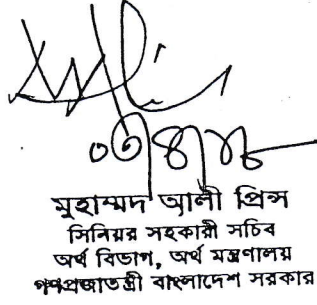 মুহাম্মদ আলী প্রিন্স
সিনিয়র সহকারী সচিব
অর্থ বিভাগ, অর্থ মন্ত্রণালয়
গণপ্রজাতন্ত্রী বাংলাদেশ সরকার